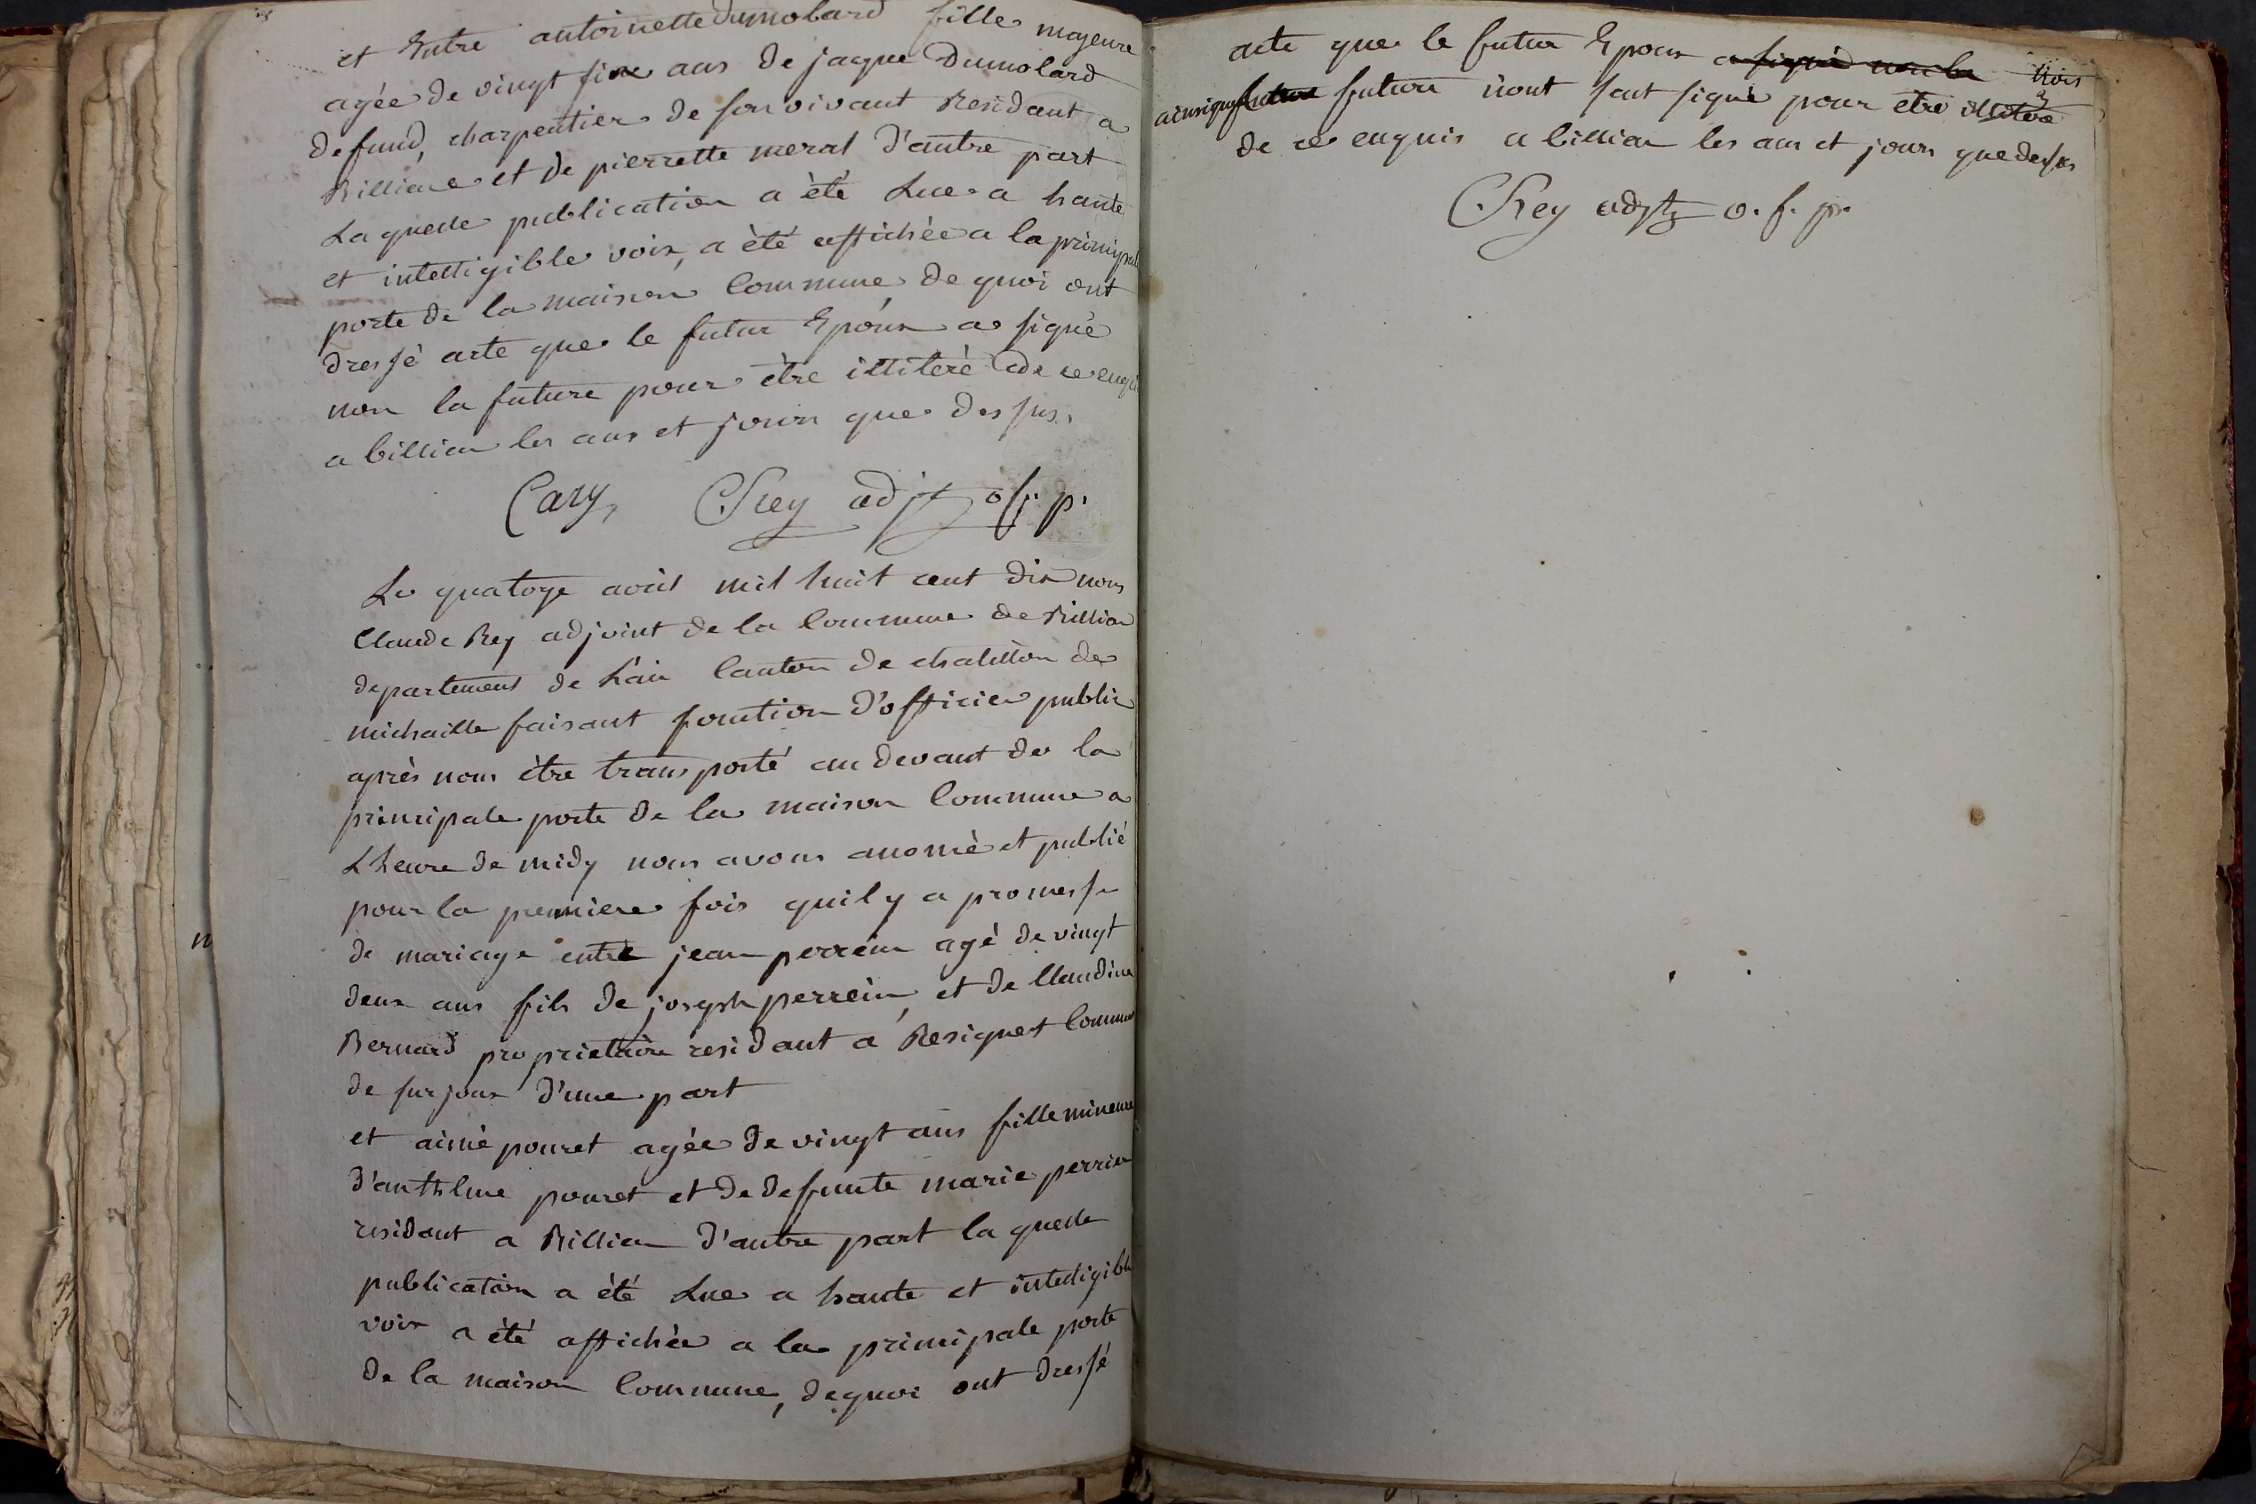 et Entre antoinette Dumolard fille majeure
agée de vingt six ans de jaque Dumolard
defund, charpentier de son vivant Residant a
Billian et de pierrette meral d'autre part
La quelle publication a été Lue a haute
et intelligible voix, a été affichée a la principale
porte de la maison Commune, de quoi ont
dressé acte que le futur Epoux a signé
non la future pour être illiteré de ce enquis
a billian les ans et jours que dessus.
Cary, CRey adjt of. p.
Le quatoze août mil huit cent dix nous
Claude Rey adjoint de la Commune de Billian
departement de L'ain Canton de chatillon de
michaille faisant fonction d'officier public
après nous être transporté au devant de la
principale porte de la maison Commune a
L'heure de midy nous avons anoncé et publié
pour la premiere fois quil y a promesse
de mariage entre jean perrein agé de vingt
deux ans fils de joseph perrein, et de Claudine
Bernard proprietaire residant a Resignet Commune
de surjoux d'une part
et aimé pouret agée de vingt ans fille mineure
d'anthlme pouret et de defunte marie perrin
residant a Billian d'autre part la quelle
publication a été Lue a haute et inteligible
voix a été affichée a la principale porte
de la maison Commune, de quoi ont dressé
acte que le futur Epoux a signé non la
ainsi que future future n'ont sout signé pour être illiteré
de ce enquis a billian les ans et jours que dessus
CRey adjt o. f. p.